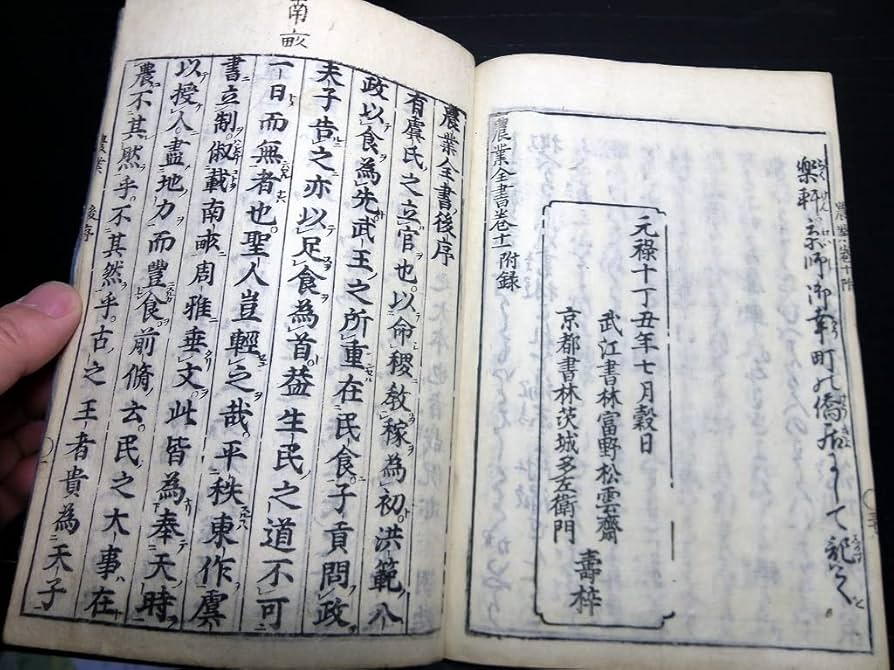 樂軒京師御幸町の僑居にして記
元祿十丁丑年七月穀日
武江書林富野松雲齋
京都書林茨城多左衛門
壽梓
農業全書卷十一附録
南畝
農業全書後序
有虞氏之立官也。以命稷敎稼為初洪範八
政以食為先武王之所重在民食子貢問政
夫子告之亦以足食為首葢生民之道不可
一日而無者也。聖人豈輕之哉。平秩東作虞
書立制。俶載南畝周雅垂文。此皆為奉天時
以授人。盡地力而豐食。前脩云。民之大事在
農不其然乎不其然乎古之王者貴為天子
農業 後序